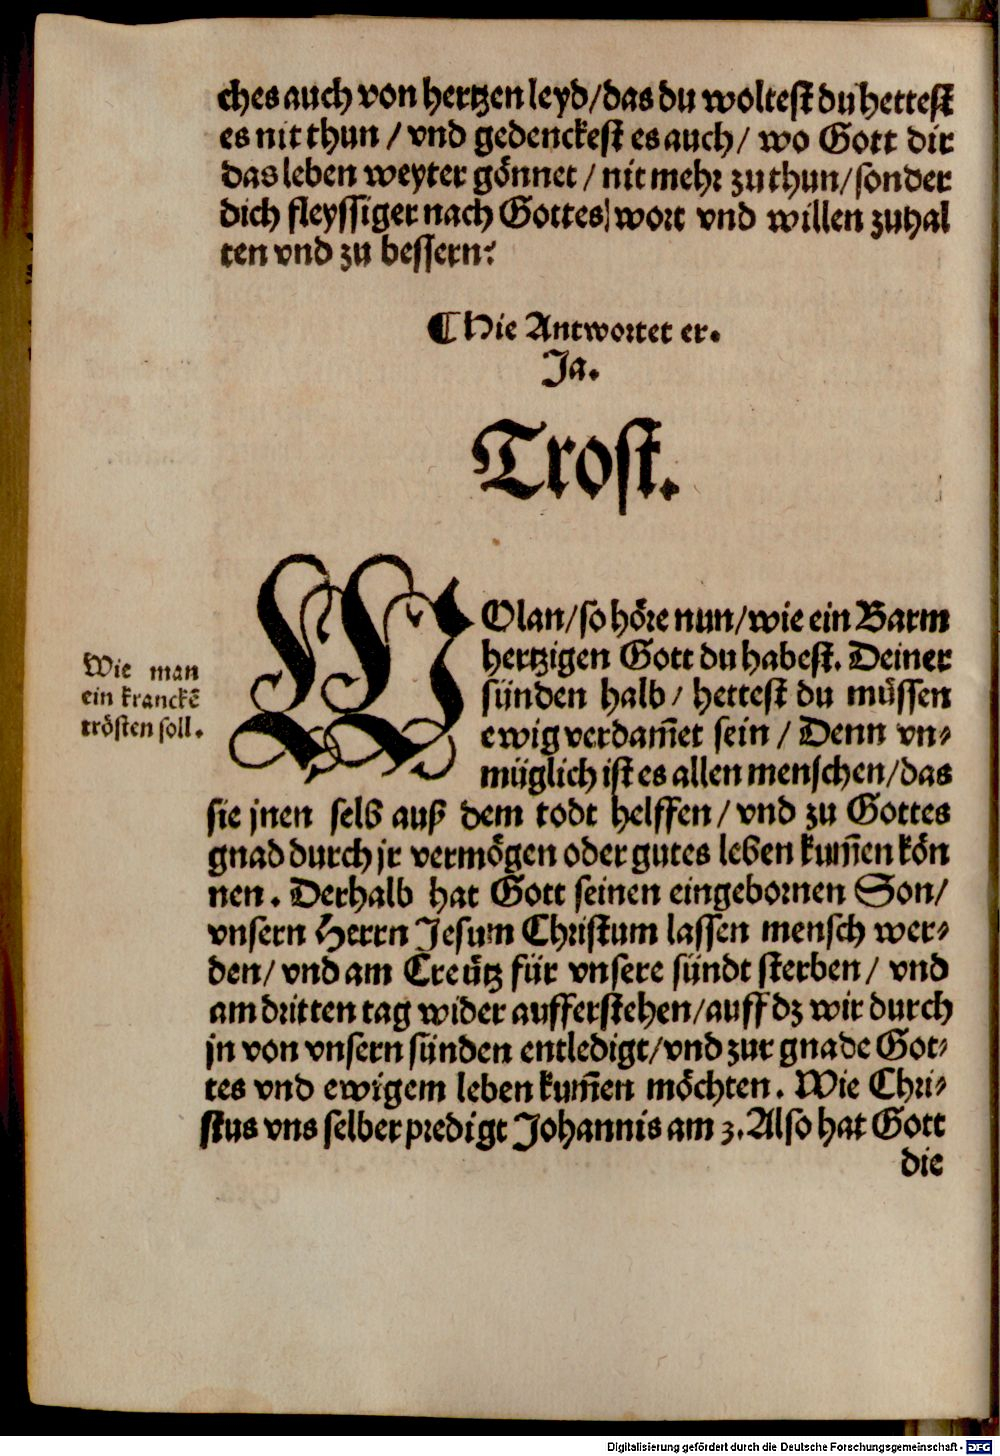 ches auch von hertzen leyd/das du woltest du hettest
es nit thun / vnd gedenckest es auch/ wo Gott dir
das leben weyter gönnet / nit mehr zu thun/sonder
dich fleyssiger nach Gottes wort vnd willen zuhal
ten vnd zu bessern?
¶ Hie Antwortet er.
Ja.
Trost.
Wie man
ein kranckē
trösten soll.
WOlan/so höre nun/wie ein Barm
hertzigen Gott du habest. Deiner
sünden halb/ hettest du müssen
ewig verdam̄et sein / Denn vn⸗
müglich ist es allen menschen/das
sie jnen selb auß dem todt helffen/ vnd zu Gottes
gnad durch jr vermögen oder gutes leben kum̄en kön
nen. Derhalb hat Gott seinen eingebornen Son/
vnsern Herrn Jesum Christum lassen mensch wer⸗
den/ vnd am Creütz für vnsere sündt sterben/ vnd
am dritten tag wider aufferstehen/auff dz wir durch
jn von vnsern sünden entledigt/vnd zur gnade Got⸗
tes vnd ewigem leben kum̄en möchten. Wie Chri⸗
stus vns selber predigt Johannis am 3. Also hat Gott
die
Digitalisierung gefördert durch die Deutsche Forschungsgemeinschaft - DFG